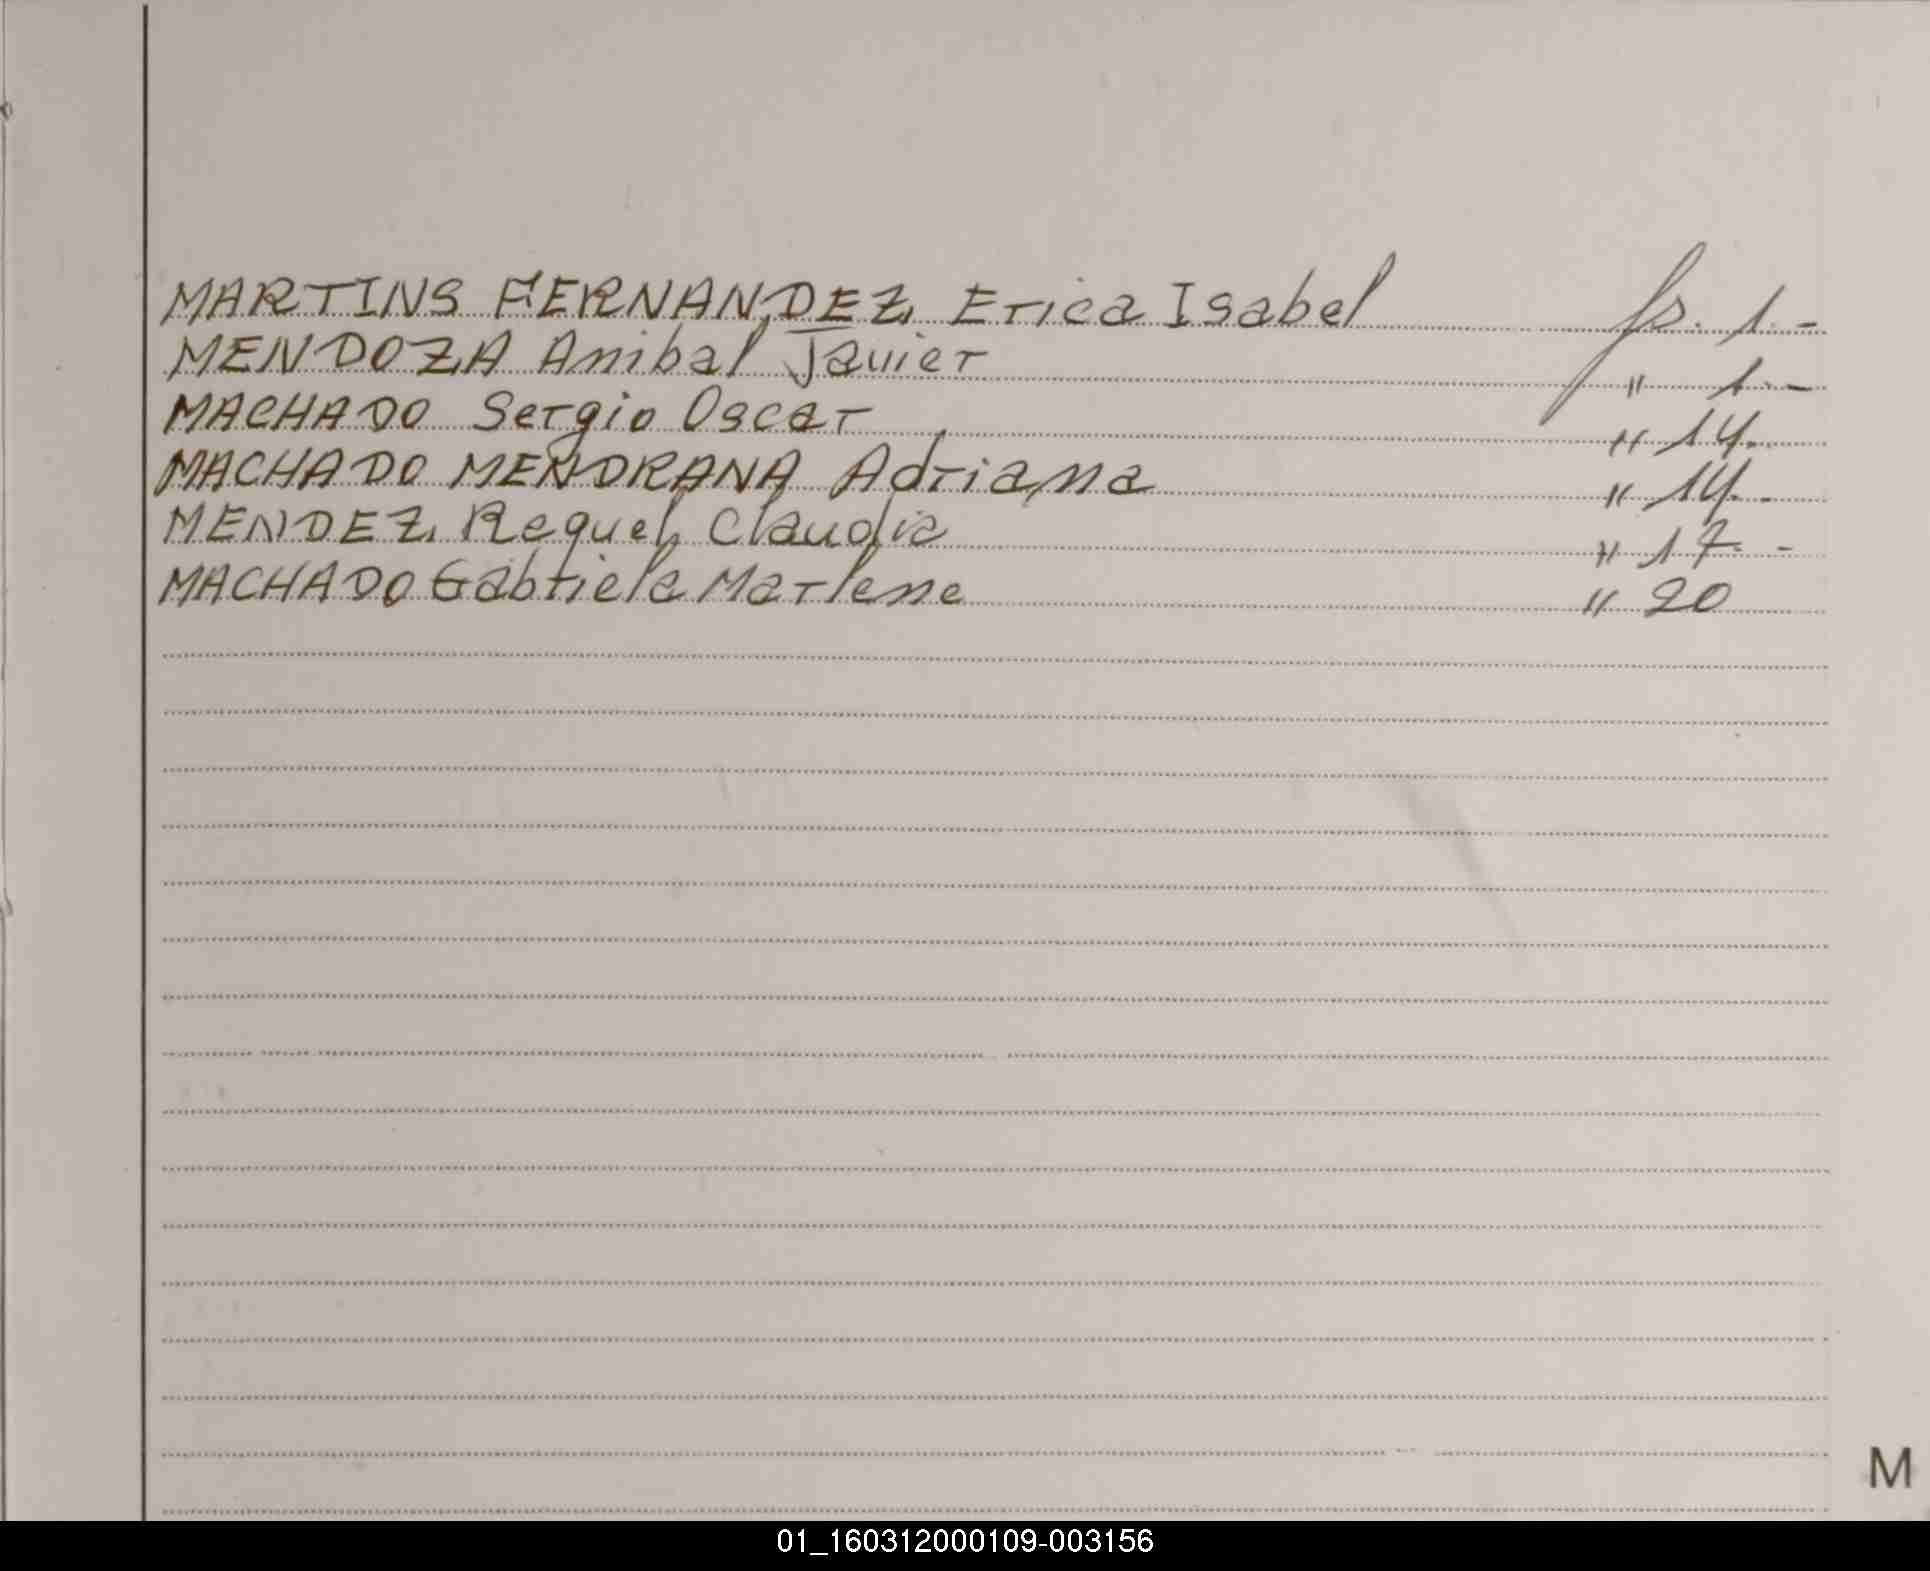 MARTINS FERNANDEZ, Erica Isabel fs. 1.-
MENDOZA Anibal Javier " 1.-
MACHADO Sergio Oscar " 14.
MACHADO MENDRANA Adriana " 14.-
MENDEZ, Requel Claudia " 17.-
MACHADO Gabriela Marlene " 20
M
01_160312000109-003156